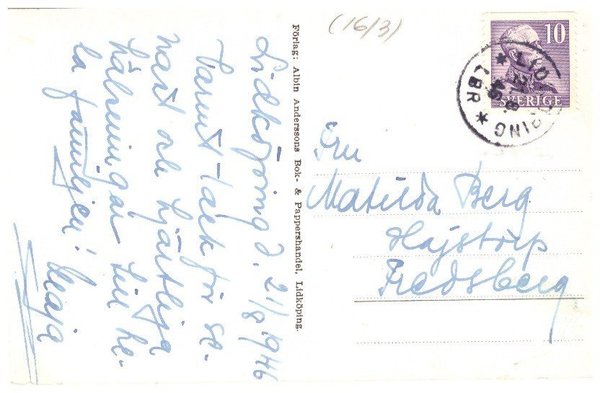 (16/3)
10
SVERIGE
LIDKÖPING
LBR
Lidköping d. 21/8 1946
Varmt tack för se-
nast och hjärtliga
hälsningar till he-
la familjen! Maja
Förlag: Albin Anderssons Bok- & Pappershandel, Lidköping.
Fru
Matilda Berg
Hajstorp
Fredsberg